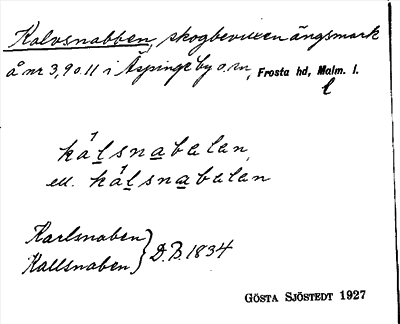 Kalvsnabben, skogbevuxen ängsmark
å nr 3, 9 o. 11 i Äspinge by o. sn, Frosta hd, Malm. l.
l
kálsnabelen,
ell. kálsnabelen
Karlsnaben
Kallsnaben } D.B. 1834
GÖSTA SJÖSTEDT 1927